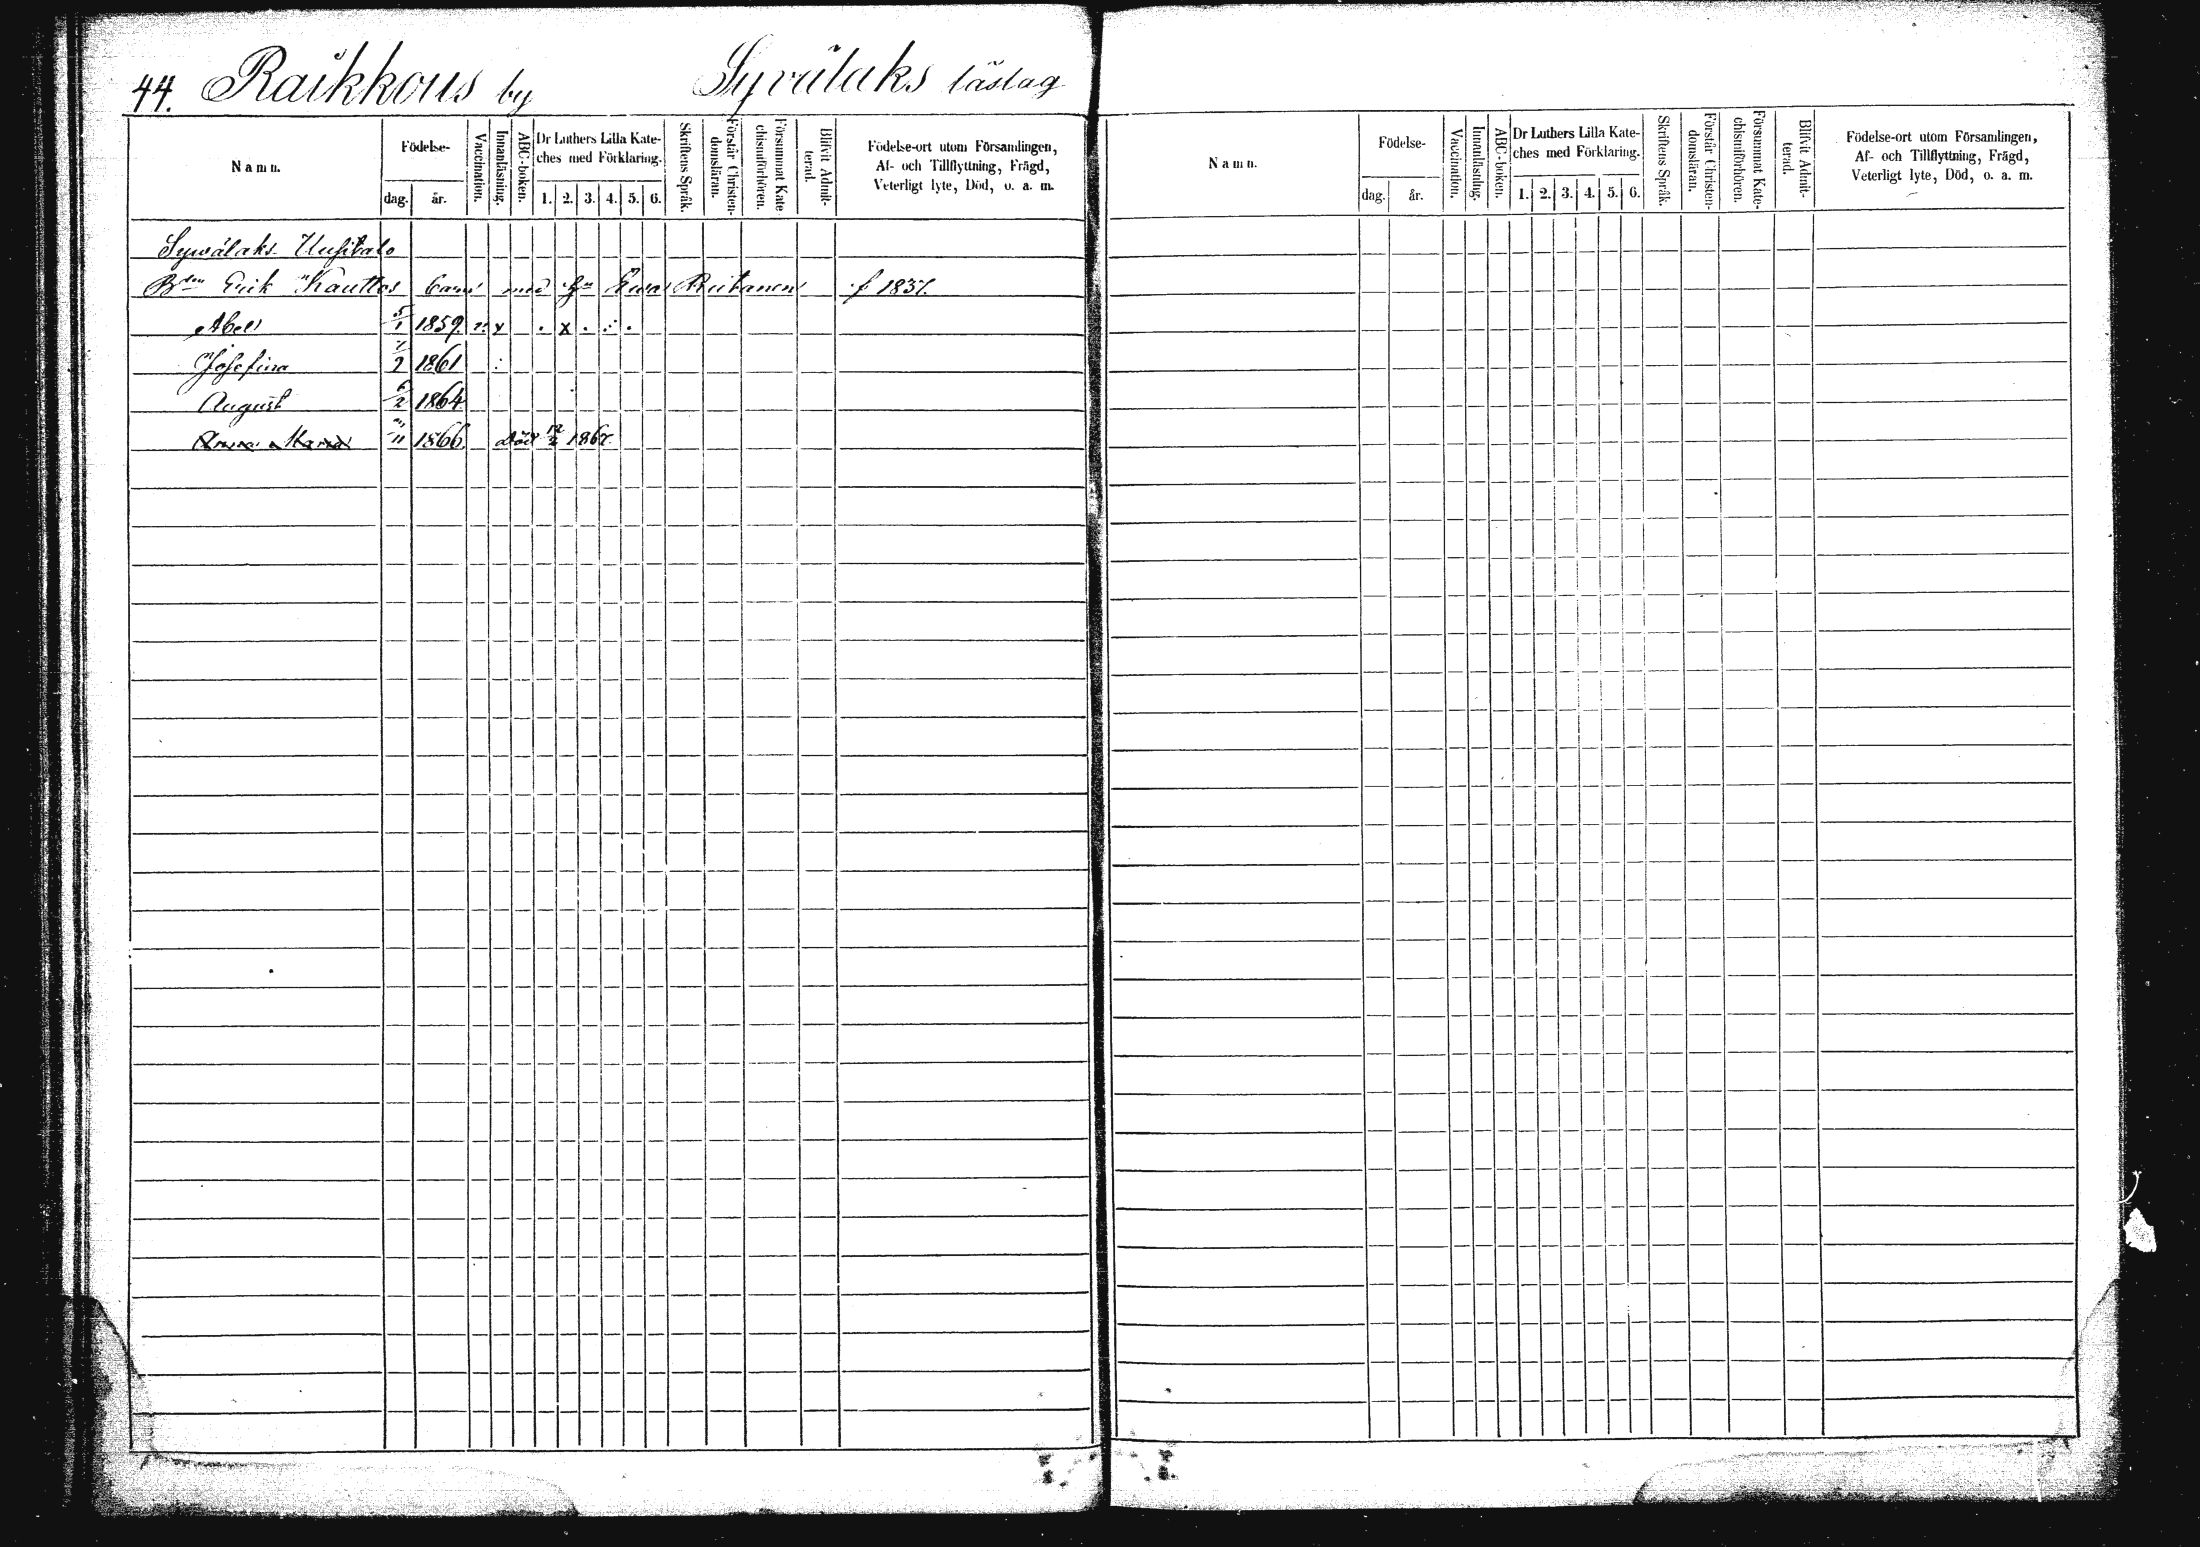 44. Raikkous by Syvälaks läslag
Namn.
Födelse-
dag. år.
Vaccination.
Innanläsning.
ABC-boken.
Dr Luthers Lilla Kate-
ches med Förklaring.
1. 2. 3. 4. 5. 6.
Skriftens Språk.
Förstår Christen-
domsläran.
Försummat Kate
chismiförhören.
Blifvit Admit-
terad.
Födelse-ort utom Församlingen,
Af- och Tillflyttning, Frägd,
Veterligt lyte, Död, o. a. m.
Syvälaks Uusitalo
Erik Kauttos barn med Hu Ewa f 1837.
Abel 5/1 1859 x . x . .
Josefina 1861
August 6/2 1864
Anna Maria 1866 död 12/2 1867.
Namn.
Födelse-
dag. år.
Vaccination.
Innanläsning.
ABC-boken.
Dr Luthers Lilla Kate-
ches med Förklaring.
1. 2. 3. 4. 5. 6.
Skriftens Språk.
Förstår Christen-
domsläran.
Försummat Kate-
chismiförhören.
Blifvit Admit-
terad.
Födelse-ort utom Församlingen,
Af- och Tillflyttning, Frägd,
Veterligt lyte, Död, o. a. m.